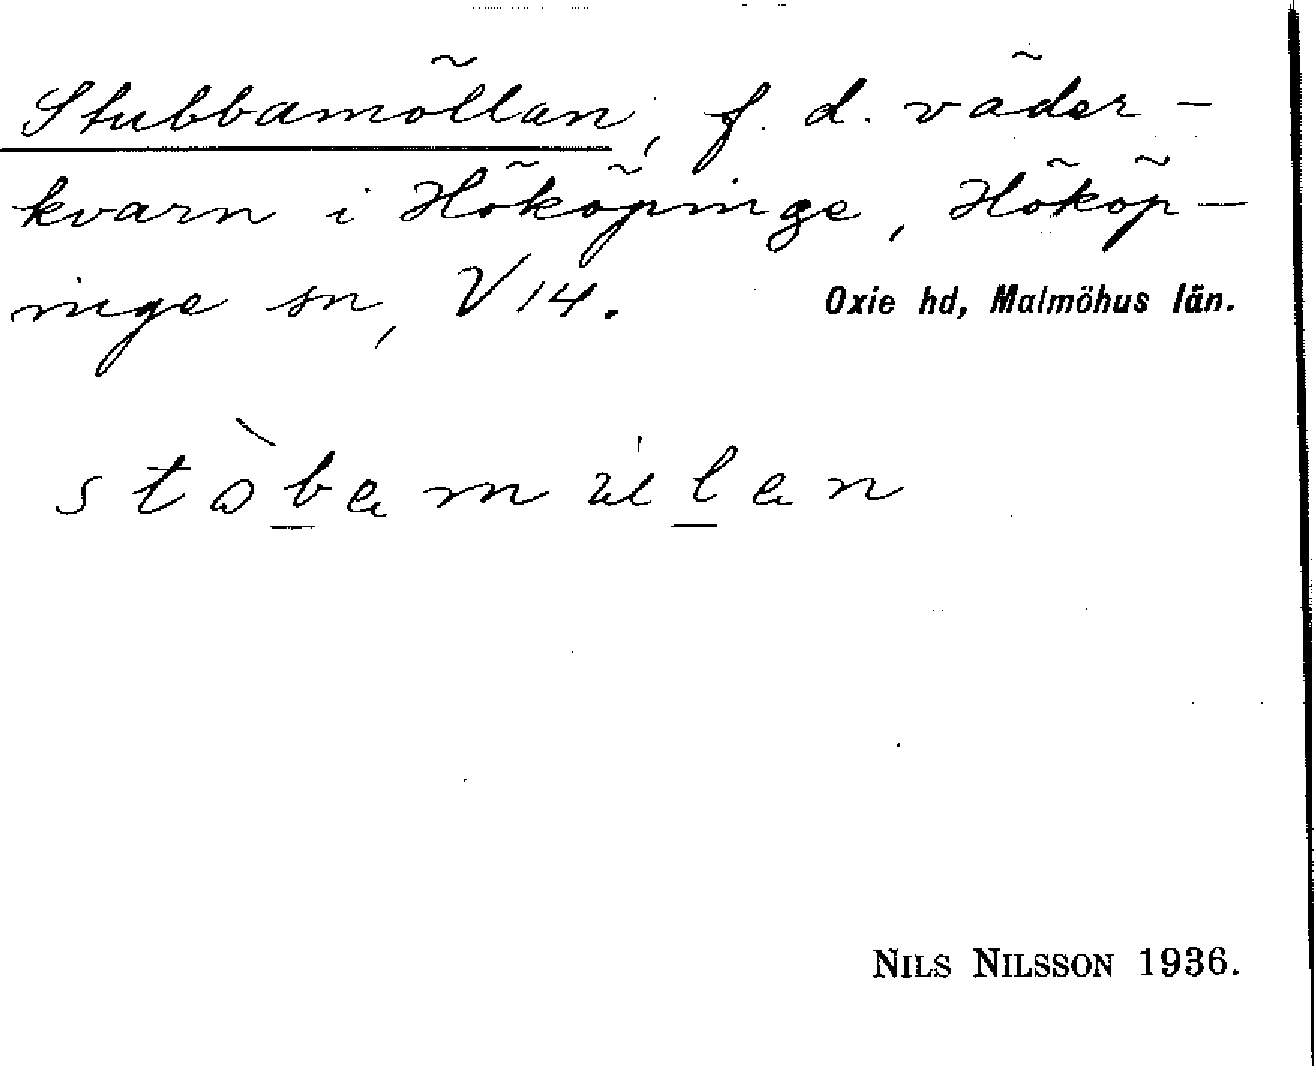 Stubbamöllan, f. d. väder-
kvarn i Hököpinge, Hököp-
inge sn, V 14. Oxie hd, Malmöhus län.
NILS NILSSON 1936.